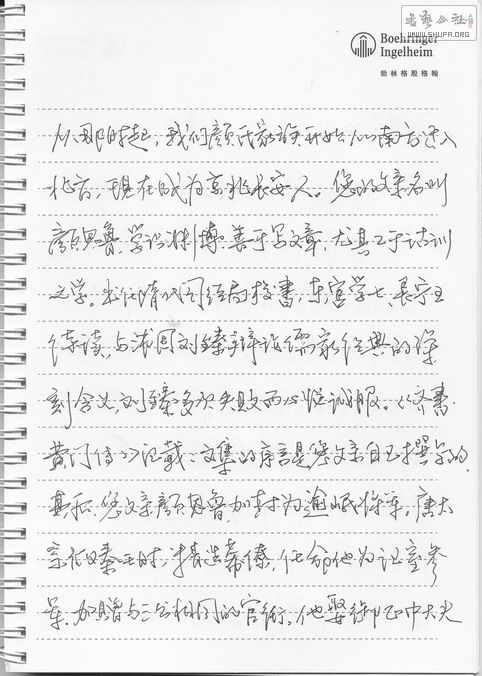 书艺公社
WWW.SHUFA.ORG
Boehringer
Ingelheim
勃林格殷格翰
从那时起,我们颜氏家族开始从南方迁入
北方,现在成为京兆长安人。您的父亲名叫
颜思鲁,学识渊博,善于写文章,尤其工于诂训
文学。出任隋代司经局校書,东宫学士,長宁王
侍读,与沛国刘臻辩论儒家经典的深
刻含义,刘臻多次失败而心悦诚服。《齐書·
黄门传》记载:文集的序言是您父亲自己撰写的。
其后,您父亲颜思鲁加封为逾岷将军,唐太
宗在秦王时,精选幕僚,任命他为记室参
军,加赠与三公相同的官衔。他娶御正中大夫